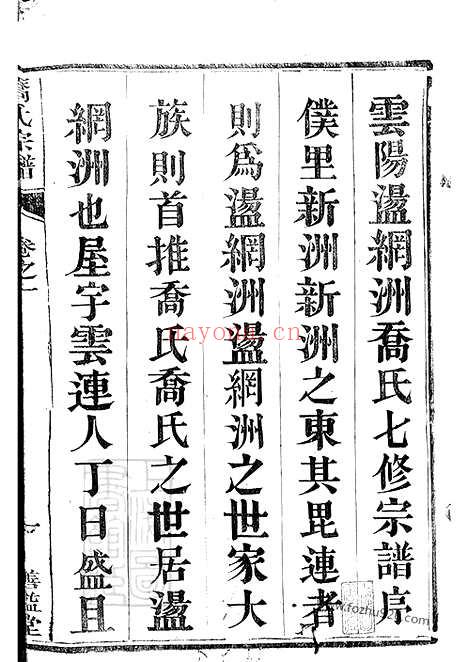 雲陽盪網洲喬氏七修宗譜序
僕里新洲新洲之東其毘連者
則為盪網洲盪網洲之世家大
族則首推喬氏喬氏之世居盪
網洲也屋宇雲連人丁日盛且
喬氏宗譜
卷之一
一
善鑑堂
nayong.cn
www.fozhu920.com